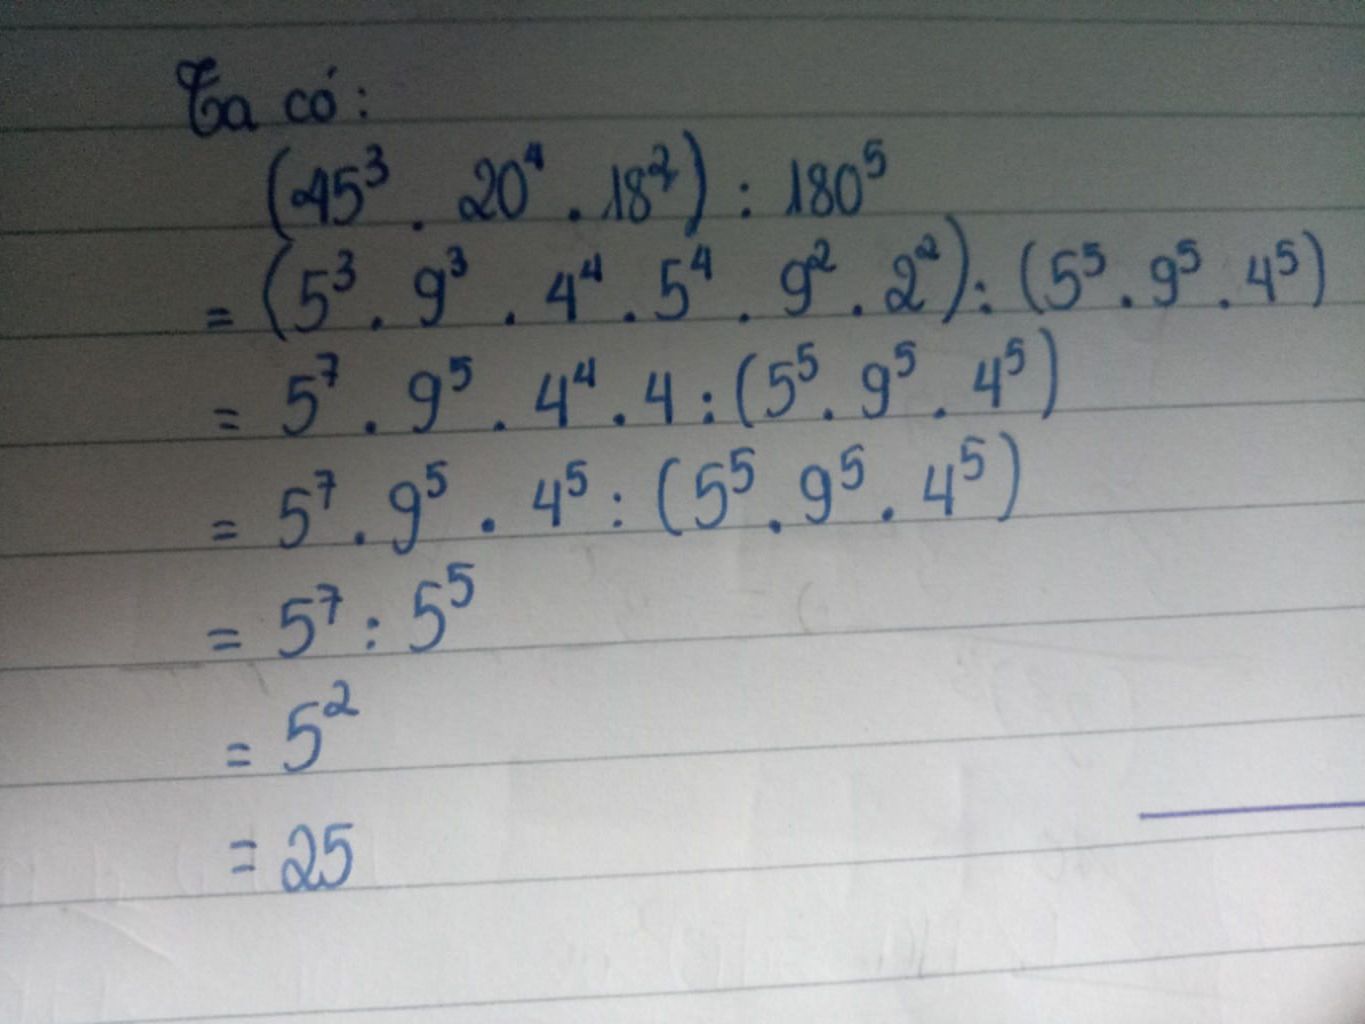 Ta có:
(45³ . 20⁴ . 18²) : 180⁵
= (5³ . 9³ . 4⁴ . 5⁴ . 9² . 2²) : (5⁵ . 9⁵ . 4⁵)
= 5⁷ . 9⁵ . 4⁴ . 4 : (5⁵ . 9⁵ . 4⁵)
= 5⁷ . 9⁵ . 4⁵ : (5⁵ . 9⁵ . 4⁵)
= 5⁷ : 5⁵
= 5²
= 25